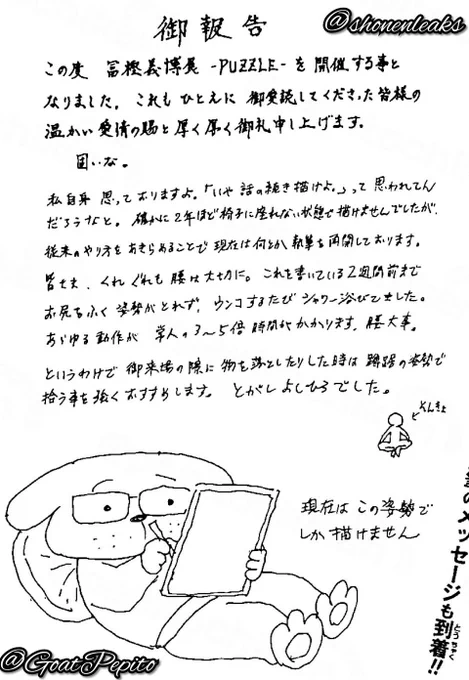 @shonenleaks
御報告
この度 冨樫義博展 -PUZZLE- を開催する事と
なりました。これもひとえに御愛読してくださった皆様の
温かい愛情の賜と厚く厚く御礼申し上げます。
固いな。
私自身思っておりますよ。「いや話の続き描けよ。」って思われてん
だろうなと。確かに2年ほど椅子に座れない状態で描けませんでしたが、
従来のやり方をあきらめることで現在は何とか執筆を再開しております。
皆さま、くれぐれも腰は大切に。これを書いている2週間前まで
お尻をふく姿勢がとれず、ウンコするたびシャワー浴びてました。
あらゆる動作が常人の3〜5倍時間がかかります。腰大事。
というわけで御来場の際に物を落としたりした時は蹲踞の姿勢で
拾う事を強くおすすめします。とがしよしひろでした。
そんきょ
現在はこの姿勢で
しか描けません
のメッセージも到着!!
とうちゃく
@GoatPepito